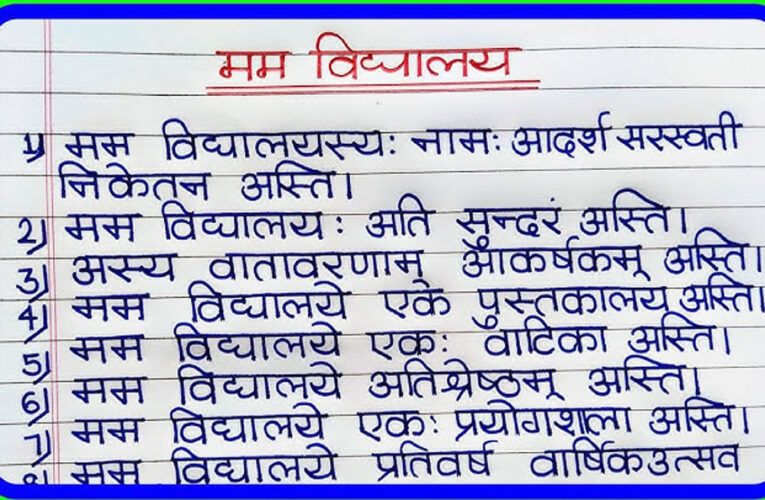 मम विद्यालय
1) मम विद्यालयस्यः नामः आदर्श सरस्वती
निकेतन अस्ति।
2) मम विद्यालयः अति सुन्दरं अस्ति।
3) अस्य वातावरणाम् आकर्षकम् अस्ति।
4) मम विद्यालये एके पुस्तकालय अस्ति।
5) मम विद्यालये एकः वाटिका अस्ति।
6) मम विद्यालये अतिश्रेष्ठम् अस्ति।
7) मम विद्यालये एकः प्रयोगशला अस्ति।
8) मम विद्यालये प्रतिवर्ष वार्षिकउत्सव